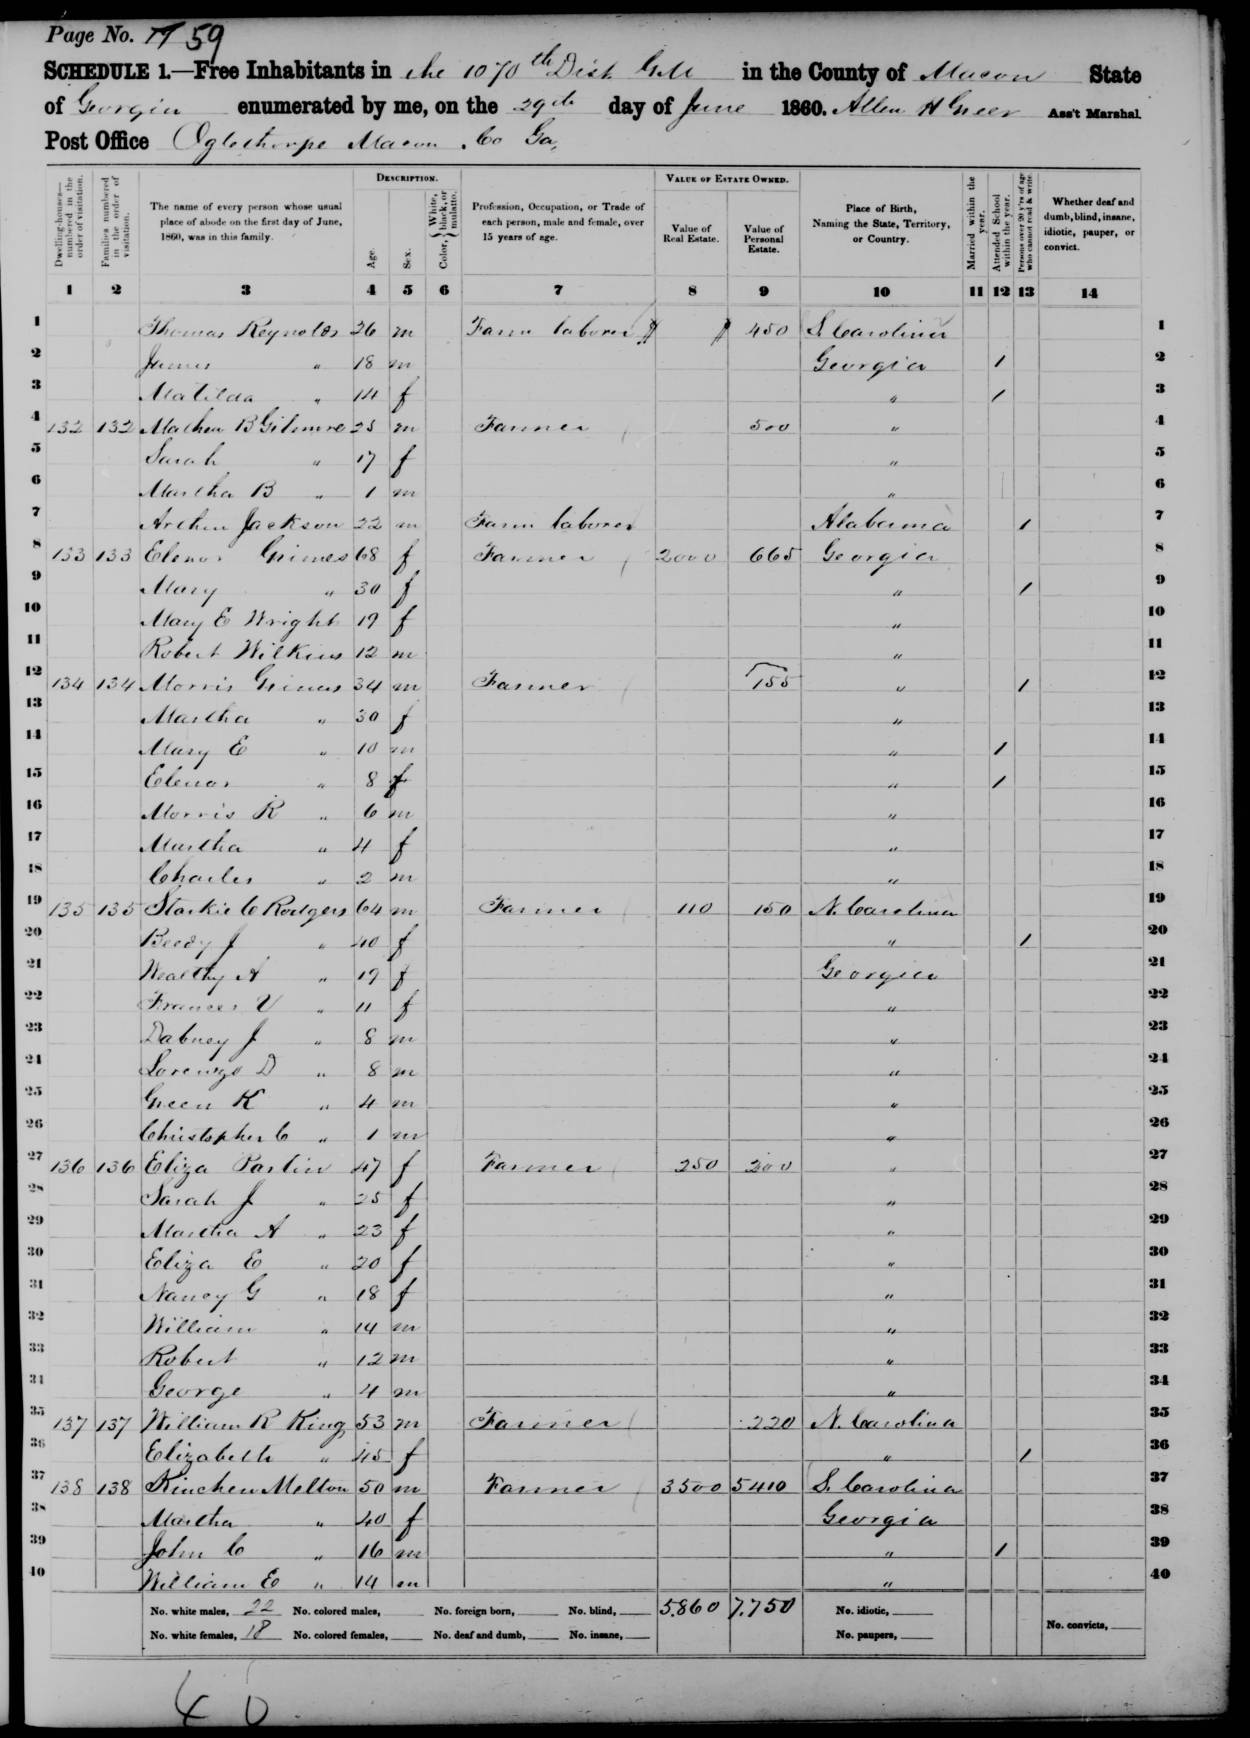 Page No. 59
SCHEDULE 1.—Free Inhabitants in the 1070th Dist G.M in the County of Macon State
of Georgia enumerated by me, on the 29th day of June 1860. Allen H Greer Ass't Marshal.
Post Office Oglethorpe Macon Co Ga,
Dwelling-houses—numbered in the order of visitation. Families numbered in the order of visitation. The name of every person whose usual place of abode on the first day of June, 1860, was in this family. DESCRIPTION. Age. Sex. Color, { White, black, or mulatto. Profession, Occupation, or Trade of each person, male and female, over 15 years of age. VALUE OF ESTATE OWNED. Value of Real Estate. Value of Personal Estate. Place of Birth, Naming the State, Territory, or Country. Married within the year. Attended School within the year. Persons over 20 y'rs of age who cannot read & write. Whether deaf and dumb, blind, insane, idiotic, pauper, or convict.
1 2 3 4 5 6 7 8 9 10 11 12 13 14
1 Thomas Reynolds 26 m Farm laborer $ $ 450 S. Carolina 1
2 James " 18 m Georgia 1 2
3 Matilda " 14 f " 1 3
4 132 132 Mathew B Gilmore 25 m Farmer 500 " 4
5 Sarah " 17 f " 5
6 Martha B " 1 m " 6
7 Jackson 22 m Farm laborer Alabama 1 7
8 133 133 Elenor Grimes 68 f Farmer 2000 665 Georgia 8
9 Mary " 30 f " 1 9
10 Mary E Wright 19 f " 10
11 Robert Wilkins 12 m " 11
12 134 134 Morris Grimes 34 m Farmer 155 " 1 12
13 Martha " 30 f " 13
14 Mary E " 10 m " 1 14
15 Elenor " 8 f " 1 15
16 Morris R " 6 m " 16
17 Martha " 4 f " 17
18 Charles " 2 m " 18
19 135 135 Starkie C Rodgers 64 m Farmer 110 150 N. Carolina 19
20 Beedy J " 40 f " 1 20
21 Wealthy A " 19 f Georgia 21
22 Frances V " 11 f " 22
23 Dabney J " 8 m " 23
24 Lorenzo D " 8 m " 24
25 Green K " 4 m " 25
26 Christopher C " 1 m " 26
27 136 136 Eliza Partin 47 f Farmer 250 200 " 27
28 Sarah J " 25 f " 28
29 Martha A " 23 f " 29
30 Eliza E " 20 f " 30
31 Nancy G " 18 f " 31
32 William " 14 m " 32
33 Robert " 12 m " 33
34 George " 4 m " 34
35 137 137 William R King 53 m Farmer 220 N. Carolina 35
36 Elizabeth " 45 f " 1 36
37 138 138 Kinchen Melton 50 m Farmer 3500 5410 S. Carolina 37
38 Martha " 40 f Georgia 38
39 John C " 16 m " 1 39
40 William E " 14 m " 40
No. white males, 22 No. colored males, No. foreign born, No. blind, 5.860 7.750 No. idiotic,
No. white females, 18 No. colored females, No. deaf and dumb, No. insane, No. paupers, No. convicts,
40